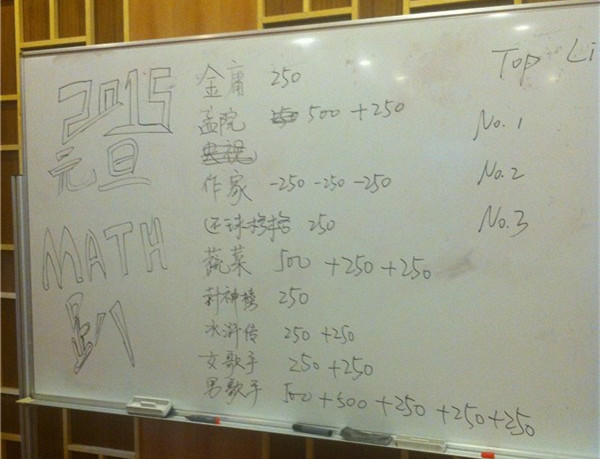 2015
元旦
MATH
趴
金庸 250
孟院 500 +250
作家 -250 -250 -250
还珠格格 250
蔬菜 500 +250 +250
封神榜 250
水浒传 250 +250
女歌手 250 +250
男歌手 500 +500 +250 +250 +250
Top Li
No.1
No.2
No.3